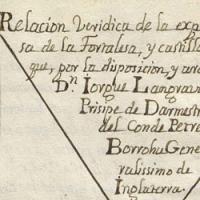 Relacion Veridica de la exp
sa de la Fortalesa, y castill
que, por la disposicion, y
Dn. Iorgue
Prisipe de Darmest
del Conde Petre
Borrohu Gene
ralissimo de
Inglaterra.